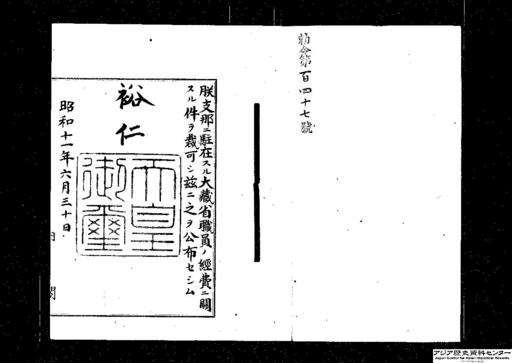 勅令第百四十七號
朕支那ニ駐在スル大藏省職員ノ經費ニ關
スル件ヲ裁可シ茲ニ之ヲ公布セシム
裕仁
天皇
御璽
昭和十一年六月三十日
アジア歴史資料センター
Japan Center for Asian Historical Records